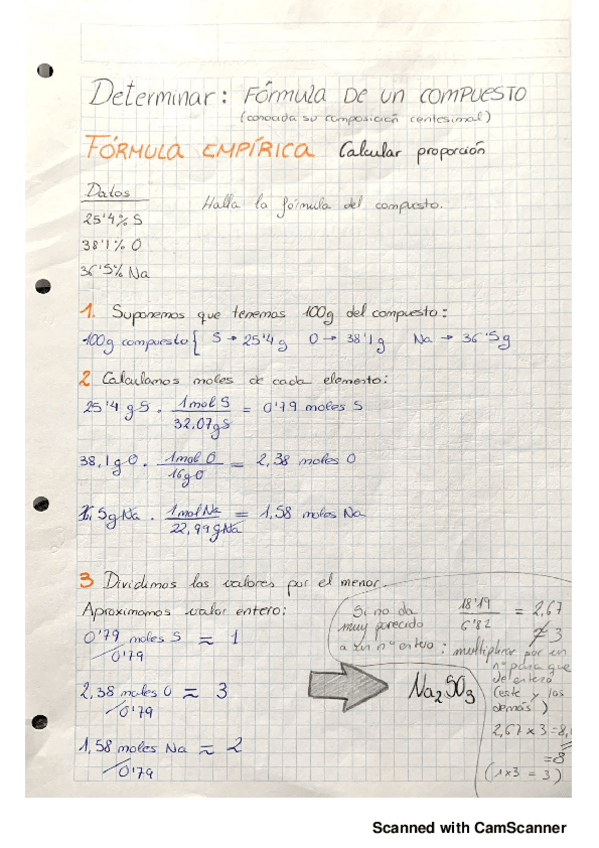 Determinar: FÓRMULA DE UN COMPUESTO
(conocida su composición centesimal)
FÓRMULA EMPÍRICA Calcular proporción
Datos
Halla la fórmula del compuesto.
25'4% S
38'1% O
36'5% Na
1. Suponemos que tenemos 100g del compuesto:
100g compuesto { S → 25'4 g O → 38'1 g Na → 36'5 g
2 Calculamos moles de cada elemento:
25'4 gS · 1mol S / 32,07gS = 0'79 moles S
38,1gO · 1mol O / 16gO = 2,38 moles O
5gNa · 1molNa / 22,99gNa = 1,58 moles Na
3 Dividimos los valores por el menor.
Aproximamos valor entero:
0'79 moles S / 0'79 ≈ 1
2,38 moles O / 0'79 ≈ 3
1,58 moles Na / 0'79 ≈ 2
Na2SO3
Si no da 18'19 / 6'82 = 2,67
muy parecido ≠ 3
a un nº entero: multiplicar por un
nº para que
dé entero
(este y los
demás)
2,67 x 3 = 8,
=8
(1x3 = 3)
Scanned with CamScanner